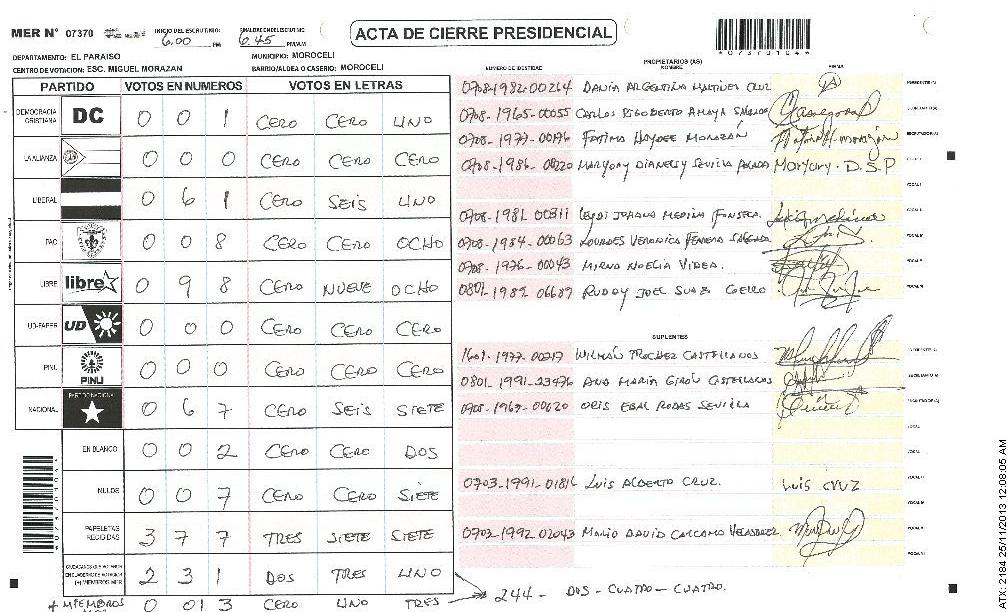 MER Nº 07370 INICIO DEL ESCRUTINIO: 6.00 PM FINALIZACION DEL ESCRUTINIO: 6.45 PM/AM
ACTA DE CIERRE PRESIDENCIAL
DEPARTAMENTO: EL PARAISO MUNICIPIO: MOROCELI
CENTRO DE VOTACION: ESC. MIGUEL MORAZAN BARRIO/ALDEA O CASERIO: MOROCELI
PARTIDO VOTOS EN NUMEROS VOTOS EN LETRAS
DEMOCRACIA CRISTIANA DC 0 0 1 CERO CERO UNO
LA ALIANZA 0 0 0 CERO CERO CERO
LIBERAL 0 6 1 CERO SEIS UNO
PAC 0 0 8 CERO CERO OCHO
LIBRE libre 0 9 8 CERO NUEVE OCHO
UD-FAPER UD 0 0 0 CERO CERO CERO
PINU PINU 0 0 0 CERO CERO CERO
NACIONAL PARTIDO NACIONAL 0 6 7 CERO SEIS SIETE
EN BLANCO 0 0 2 CERO CERO DOS
NULOS 0 0 7 CERO CERO SIETE
PAPELETAS RECIBIDAS 3 7 7 TRES SIETE SIETE
CIUDADANOS QUE VOTARON EN CUADERNO DE VOTACION (+) MIEMBROS MER 2 3 1 DOS TRES UNO
+ MIEMBROS 0 01 3 CERO UNO TRES
244 - DOS - CUATRO - CUATRO.
PROPIETARIOS (AS)
NUMERO DE IDENTIDAD NOMBRE FIRMA
0708-1982-00264 DANIA ARGENTINA MARTINEZ CRUZ
0708-1965-00055 CARLOS RIGOBERTO AMAYA
0708-1977-00176 FATIMA HAYDEE MORAZAN
0708-1986-00220 MARYORY DIANELSY SEVILLA Maryory. D.S.P
0708-1981 00311 LEYDI JOHANA MEDINA FONSECA.
0708-1984-00063 LOURDES VERONICA
0708-1976-00043 MIRNA NOELIA VIDEA.
0801 1989 06689 RUDDY JOEL
SUPLENTES
1601-1977-00217 WILMAN TROCHEZ CASTELLANOS
0801-1991-23476 ANA MARIA GIRON CASTELLANOS
0708-1969-00620 ORIS EBAL RODAS SEVILLA
0703-1991-01816 LUIS ALBERTO CRUZ. LUIS CRUZ
0703-1992 02043 MARIO DAVID CARCAMO VELASQUEZ
ATX: 2184 25/11/2013 12:08:05 AM